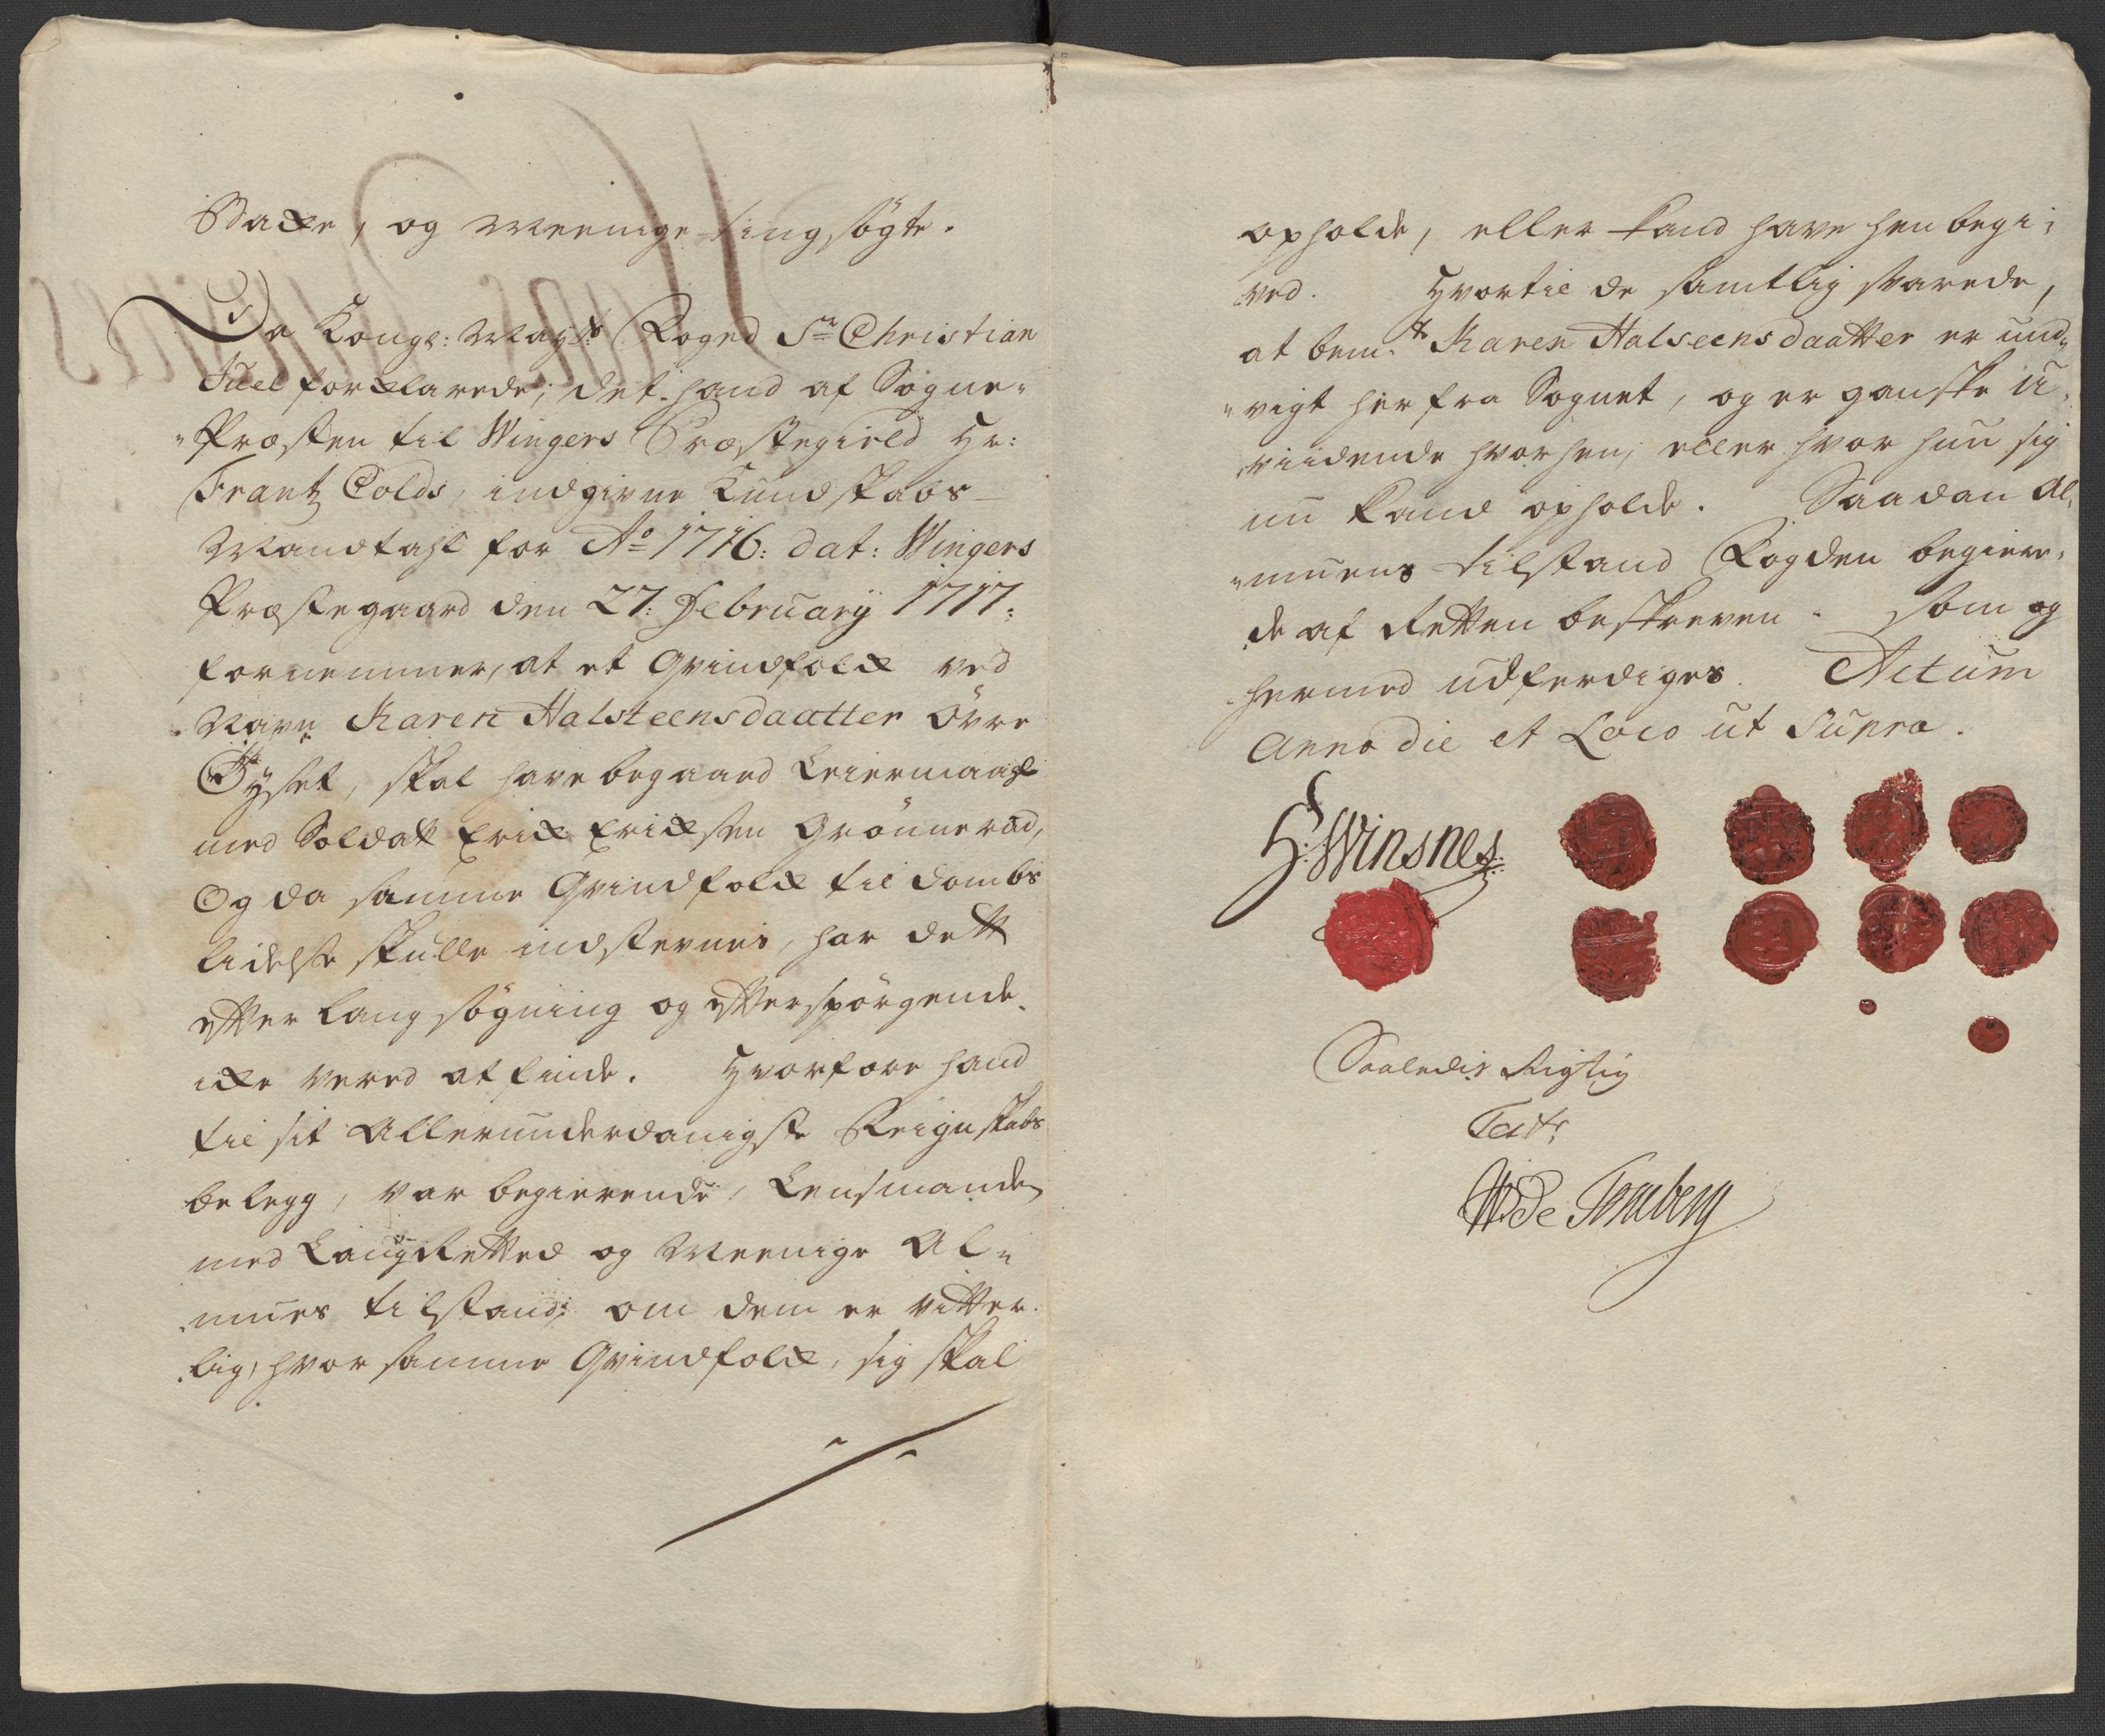 Bakke, og Meenige tingsøgte.
Da Kongl: Mayts: Foged Sr Christian
Juel forklarede, det hand af Sogne-
Præsten til Wingers Præstegield Hr:
Frantz Colds, indgivne Kundskabs
Mandtahl for Ao 1716: dat: Wingers
Præstegaard den 27: February 1717:
fornemmer, at et Qvindfolk ved
Navn Karen Halsteensdaatter Øvre
Tyset, skal have begaaed Leiermaahl
med Soldatt Erik Eriksen Grønnerud,
Og da samme Qvindfolk til dombs
lidelse skulle indstevnes, har dett
efter lang søgning og efterspørgende
ikke vered at finde. Hvorfore hand
til sit Allerunderdanigste Reignskabs
belegg, var begierende, Lensmanden
med LaugRetted og Meenige Al-
mues tilstand, om dem er vitter-
lig, hvor samme Qvindfolk, sig skal
opholde, eller kand have hen begi-
ved. Hvortil de samtlig svarede,
at bem.te Karen Halseensdaatter er und-
vigt her fra Sognet, og er ganske u-
viidende hvorhen, eller hvor hun sig
nu kand opholde. Saadan Al-
muens tilstand Fogden begiere-
de af Retten beskreven. som og
hermed udferdiges. Actum
Anno die et Loco ut Supra.
H: Winsnes.
Saaledis Rigtig
Test:
WdeTonsberg